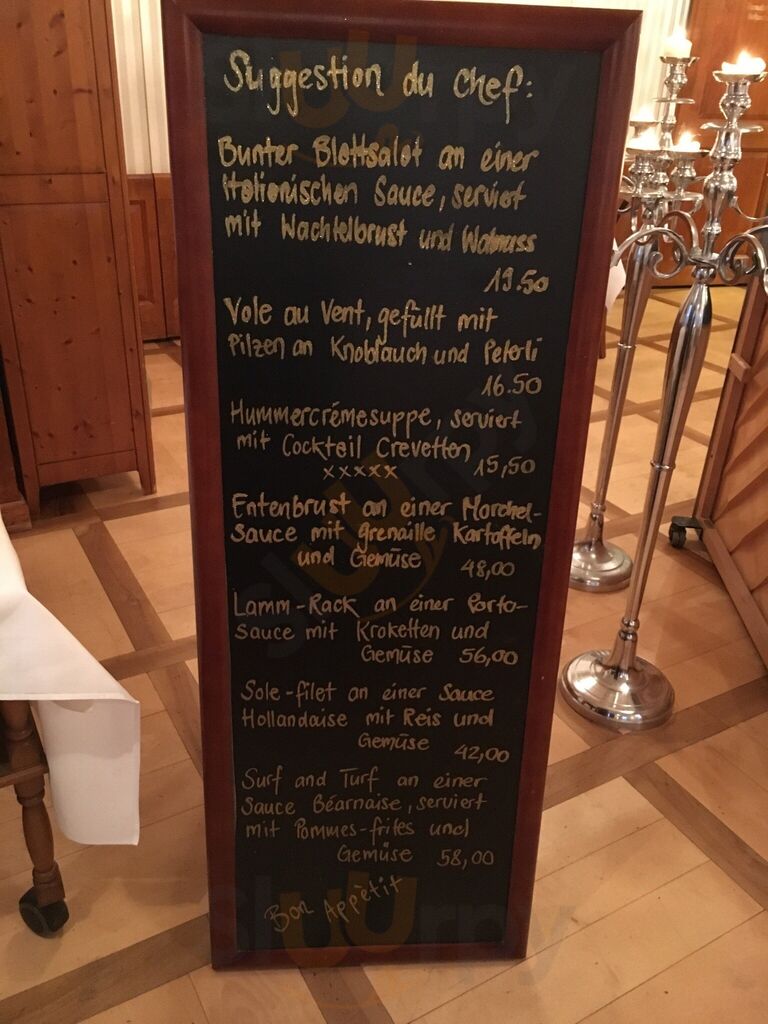 Suggestion du Chef:
Bunter Blattsalat an einer
Italienischen Sauce, serviert
mit Wachtelbrust und Walnuss
19.50
Vole au Vent, gefüllt mit
Pilzen an Knoblauch und Peterli
16.50
Hummercrémesuppe, serviert
mit Cocktail Crevetten
xxxxx 15,50
Entenbrust an einer Morchel-
Sauce mit grenaille Kartoffeln
und Gemüse 48,00
Lamm-Rack an einer Porto-
Sauce mit Kroketten und
Gemüse 56,00
Sole-filet an einer Sauce
Hollandaise mit Reis und
Gemüse 42,00
Surf and Turf an einer
Sauce Béarnaise, serviert
mit Pommes-frites und
Gemüse 58,00
Bon Appètit
sluurpy